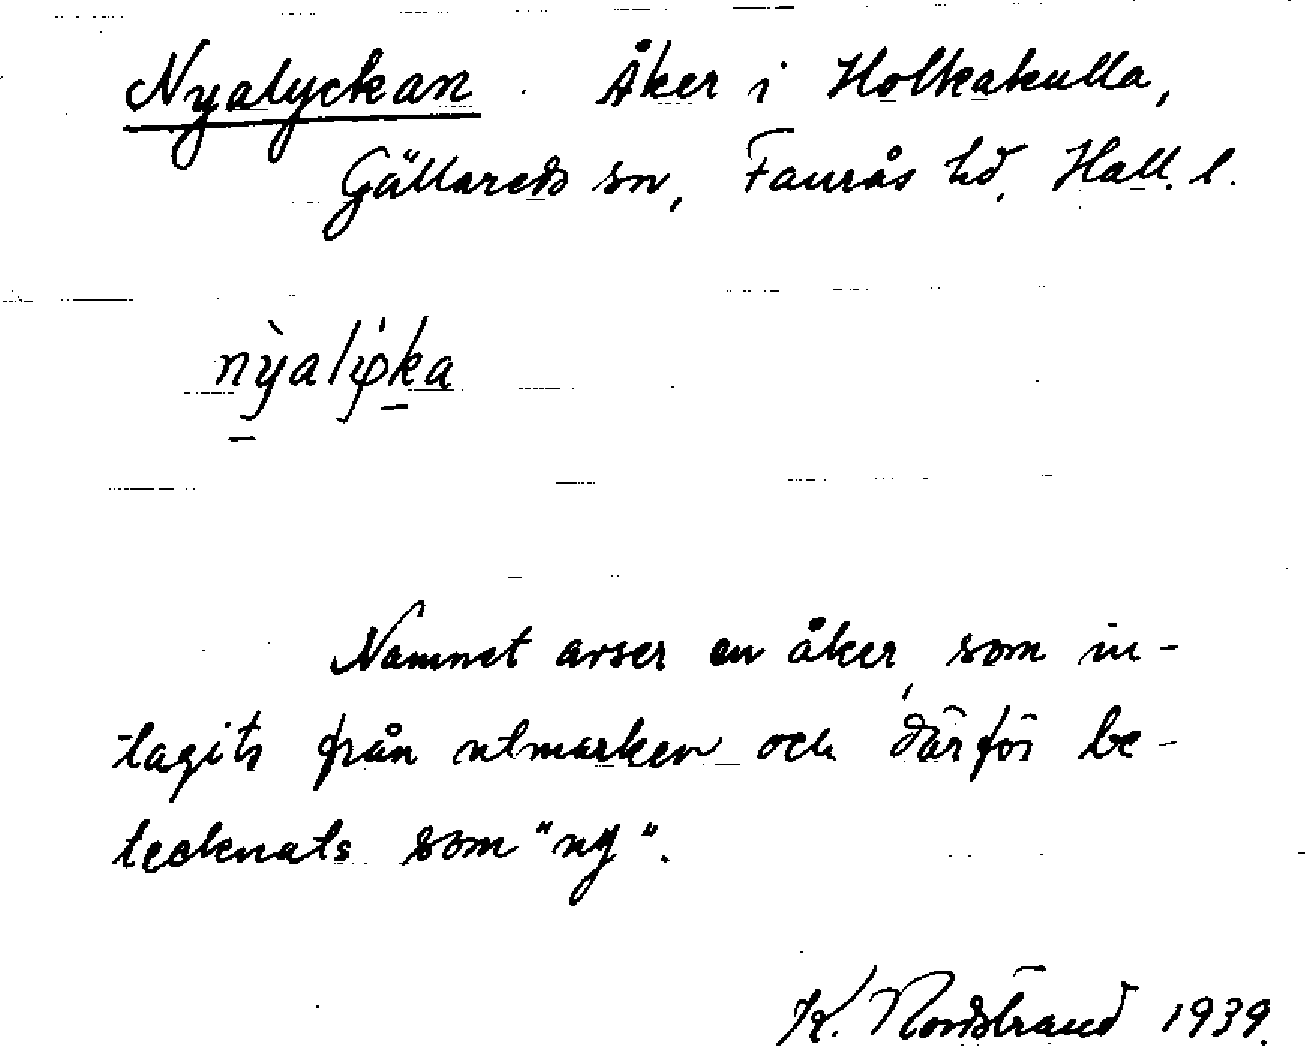 Nyalyckan. Åker i Holkakulla,
Gällareds sn, Faurås hd, Hall. l.
nỳalyka
Namnet avser en åker, som in-
tagits från utmarken och därför be-
tecknats som "ny".
K. Nordstrand 1939.